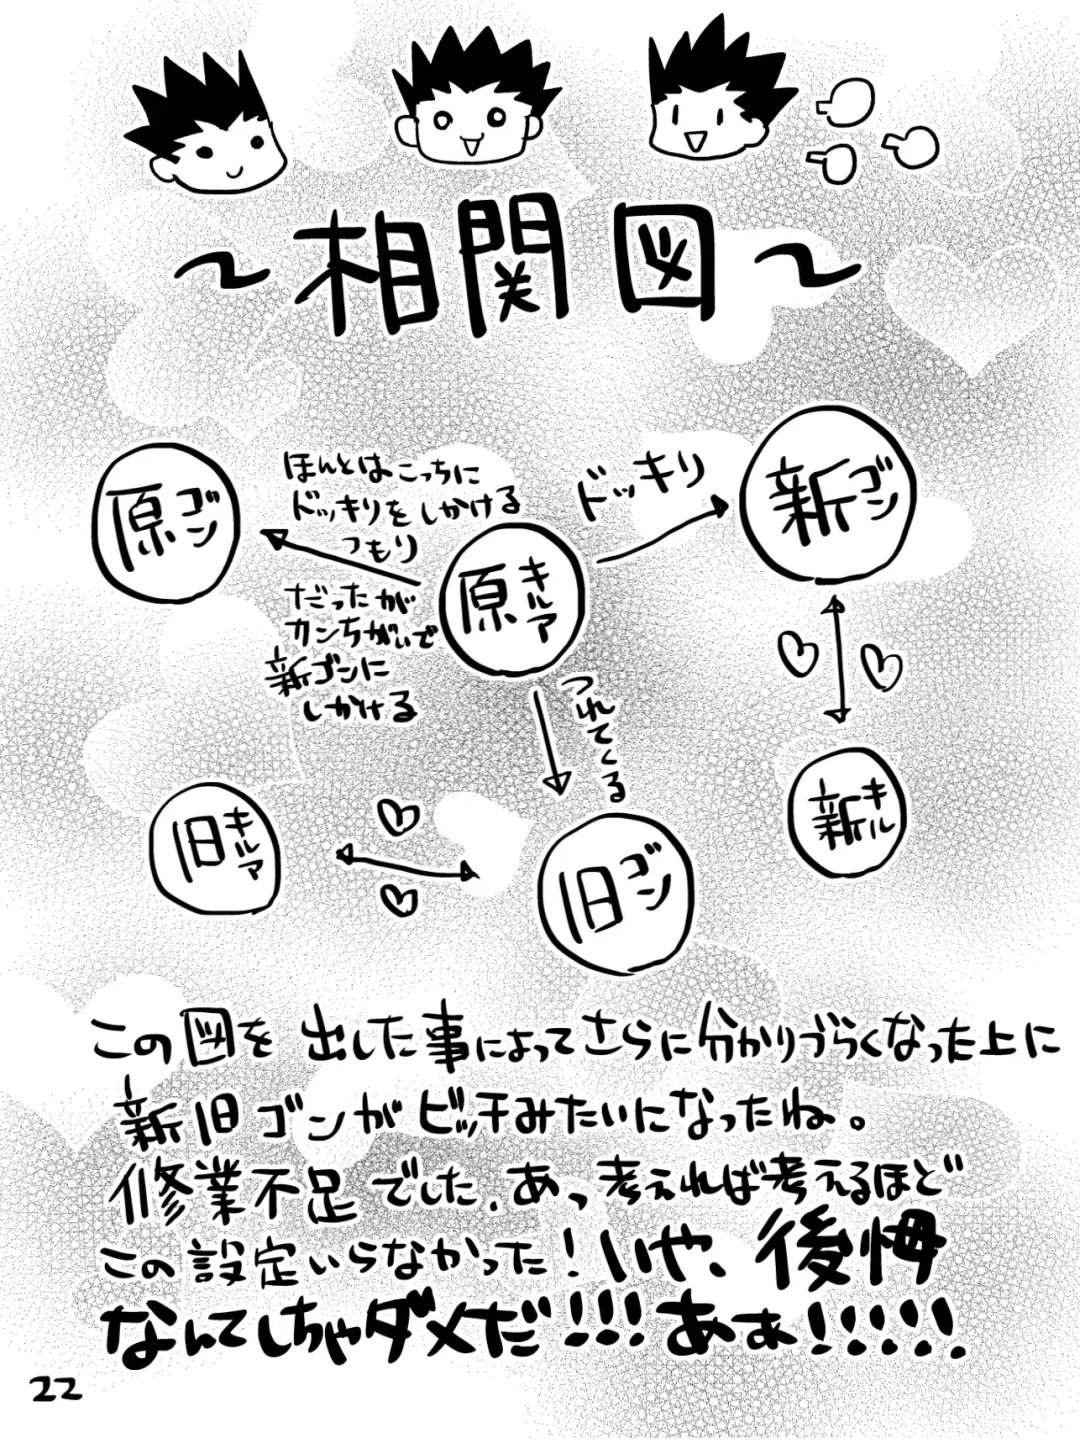 〜相関図〜
原ゴン
ほんとはこっちに
ドッキリをしかける
つもり
だったが
カンちがいで
新ゴンに
しかける
原キルア
ドッキリ
新ゴン
つれてくる
旧キルア
旧ゴン
新キル
この図を出した事によってさらに分かりづらくなった上に
新旧ゴンがビッ汗みたいになったね。
修業不足でした.あっ考えれば考えるほど
この設定いらなかった!いや、後悔
なんてしちゃダメだ!!!!ああ!!!!!
22